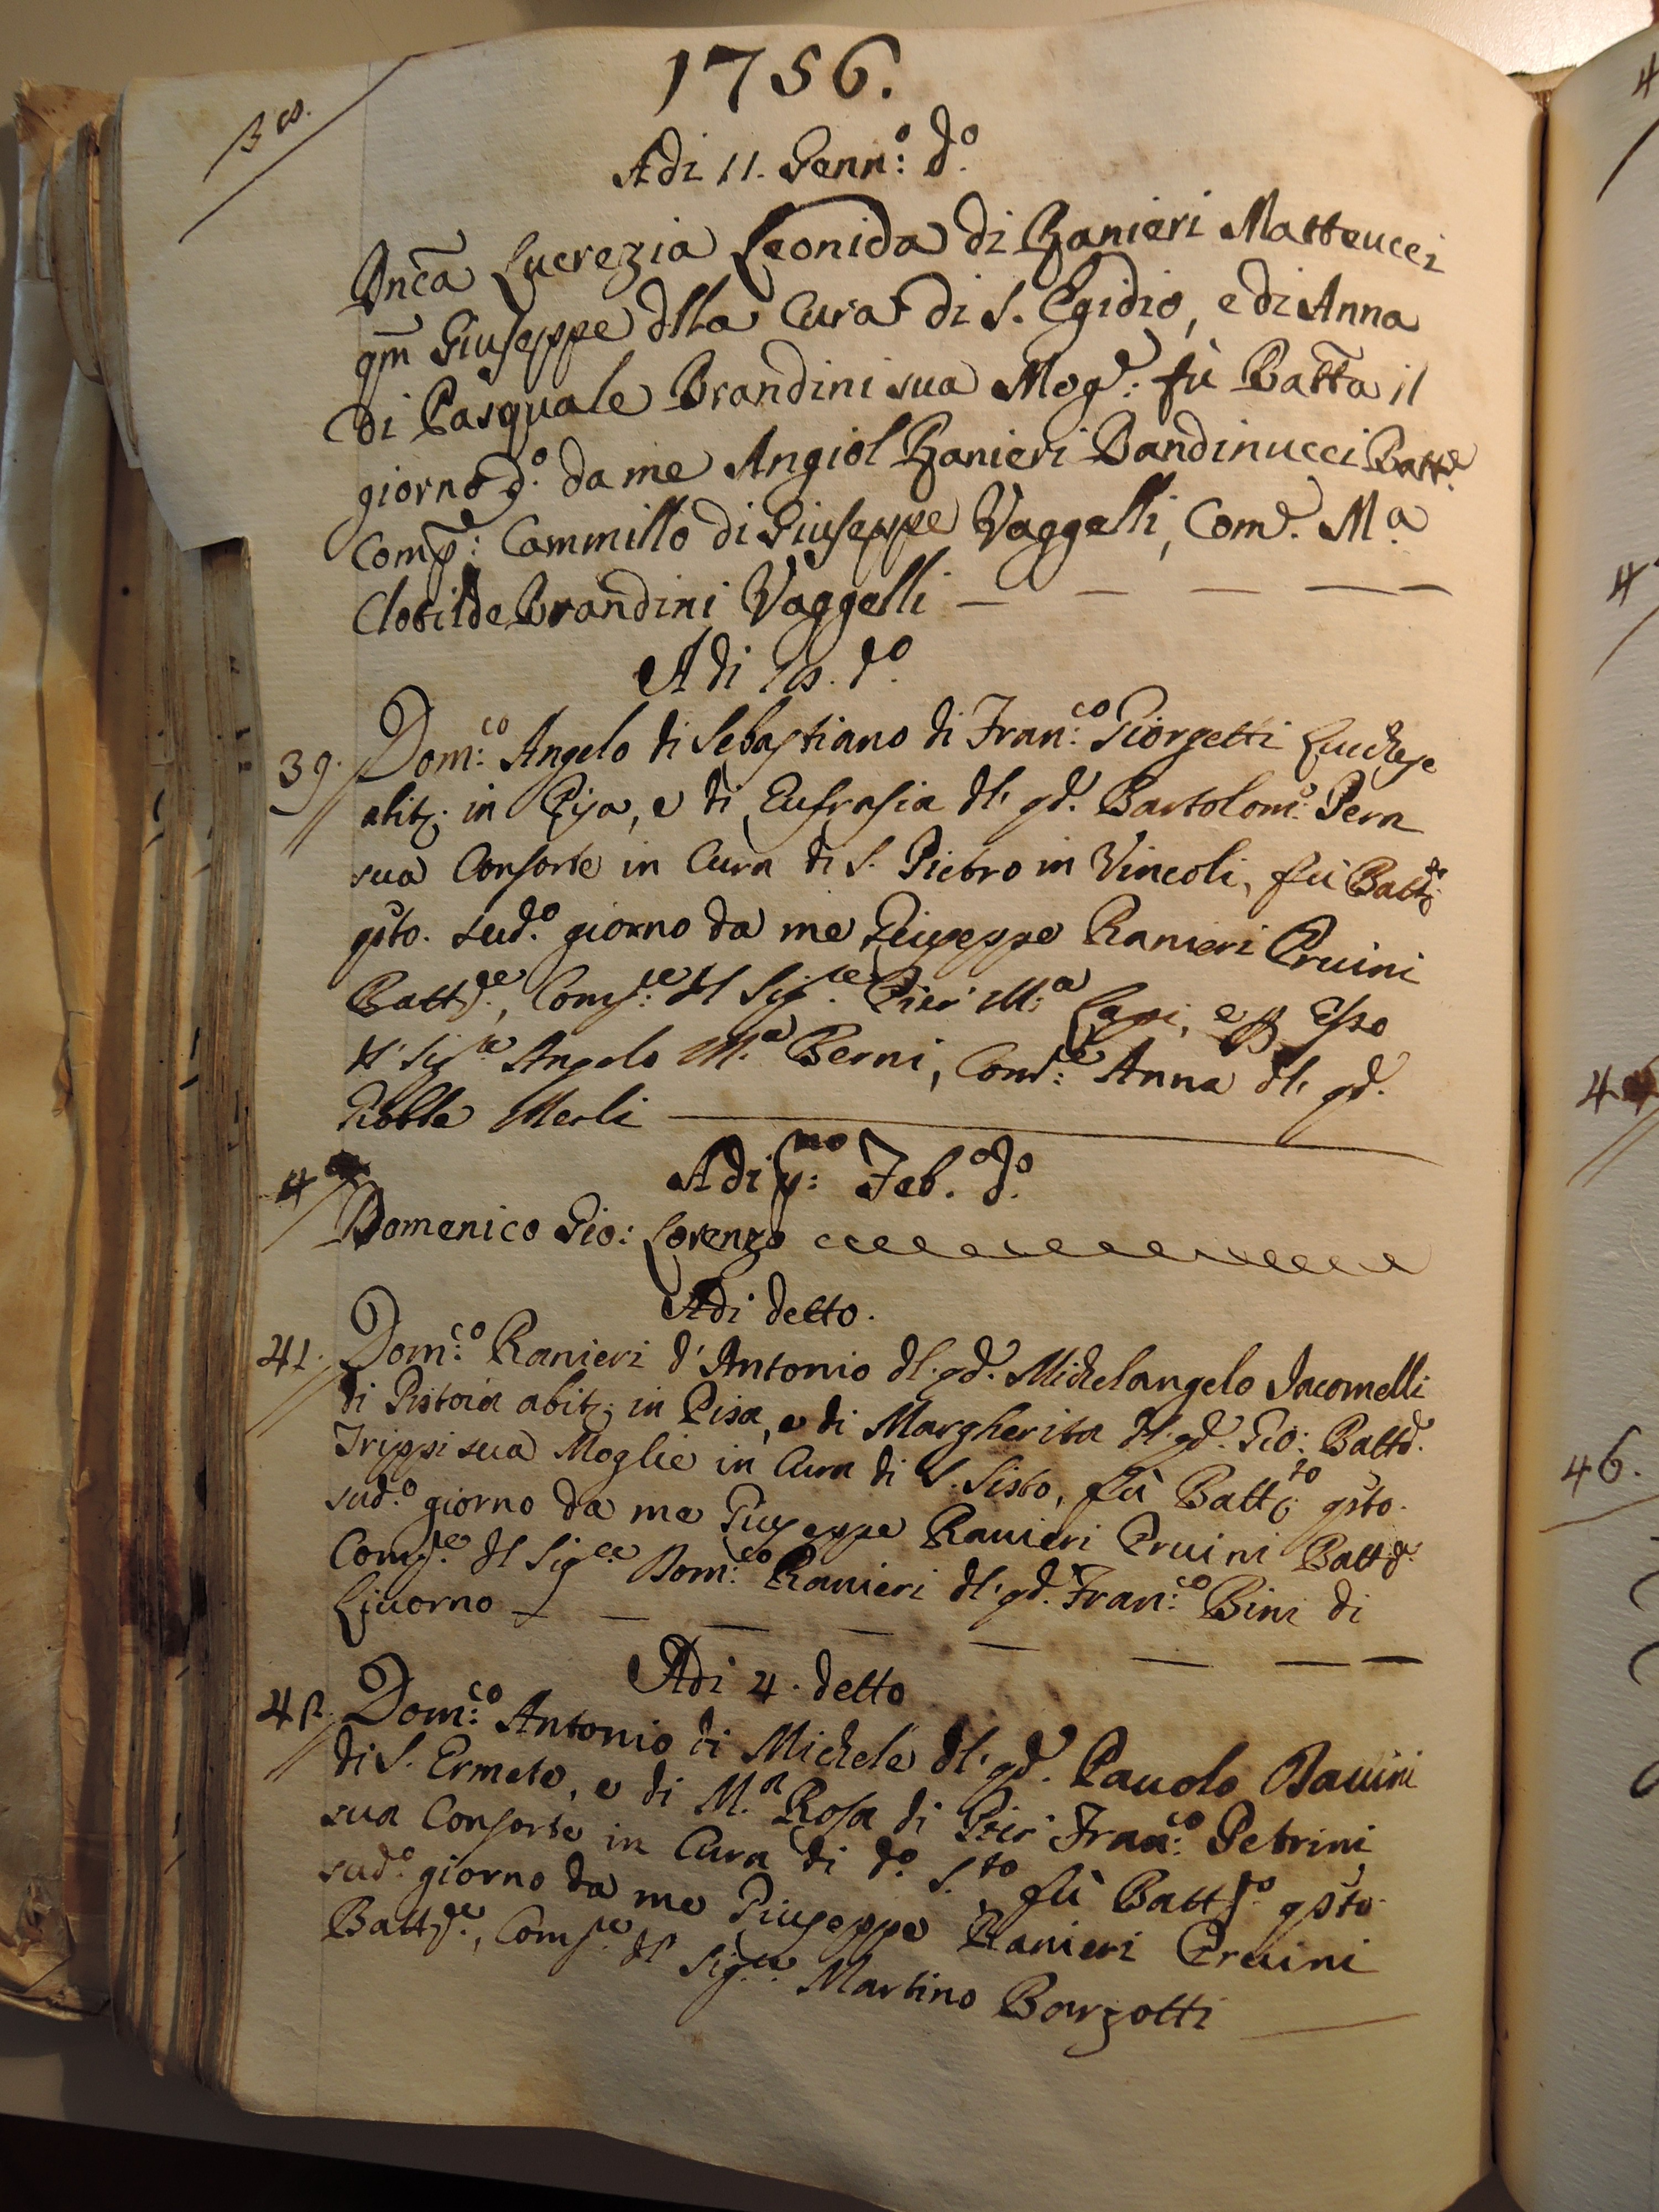 1756.
38.
Adi 11. Genn:º dº.
Dnca Lucrezia Leonida di Ranieri Matteucci
qm Giuseppe dlla Cura di S. Egidio, e di Anna
di Pasquale Brandini sua Moge: fù Batta il
giorno dº. da me Angiol Ranieri Bandinucci Batte.
Compe: Cammillo di Giuseppe Vaggelli, Come. Mª
Clotilde Brandini Vaggelli
Adi 18. dº.
39. Dom:co Angelo di Sebastiano di Fran:co Giorgetti Lucchese
abit. in Pisa, e di Eufrasia dl. qd. Bartolom:º Pera
sua Consorte in Cura di S. Pietro in Vincoli, fù Batt.
qsto. sudº. giorno da me Giuseppe Ranieri Pruini
Batt.re, Comp:re dl Sig.re Pier M:ª e p Esso
il Sig.re Angelo M.ª Berni, Com:re Anna dl. qd.
Merli
4 Adi p:mo Feb.º dº.
Domenico Gio: Lorenzo
Adi detto.
41. Dom:co Ranieri d'Antonio dl. qd. Michelangelo Jacomelli
di Pistoia abit. in Pisa, e di Margherita dl. qd. Gio: Batta.
Trippi sua Moglie in Cura di S. Sisto, fù Batt.to qsto.
sud.º giorno da me Giuseppe Ranieri Pruini Batt.re
Comp.re dl Sig.re Dom:co Ranieri dl. qd. Fran:co Bini di
Livorno
Adi 4. detto
42. Dom:co Antonio di Michele dl. qd. Pauolo Bauini
di S. Ermete, e di M.ª Rosa di Pier Fran:co Petrini
sua Consorte in Cura di dº. S.to fù Batt.to qsto.
sud.º giorno da me Giuseppe Ranieri Pruini
Batt.re, Comp.re dl Sig.re Martino Barzotti
4
4
4
46.